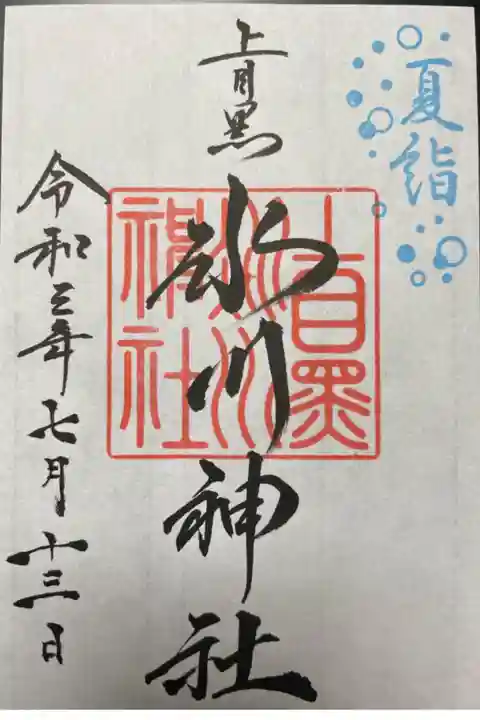 夏詣
上目黒
氷川神社
上目黒
氷川
神社
令和三年七月十三日